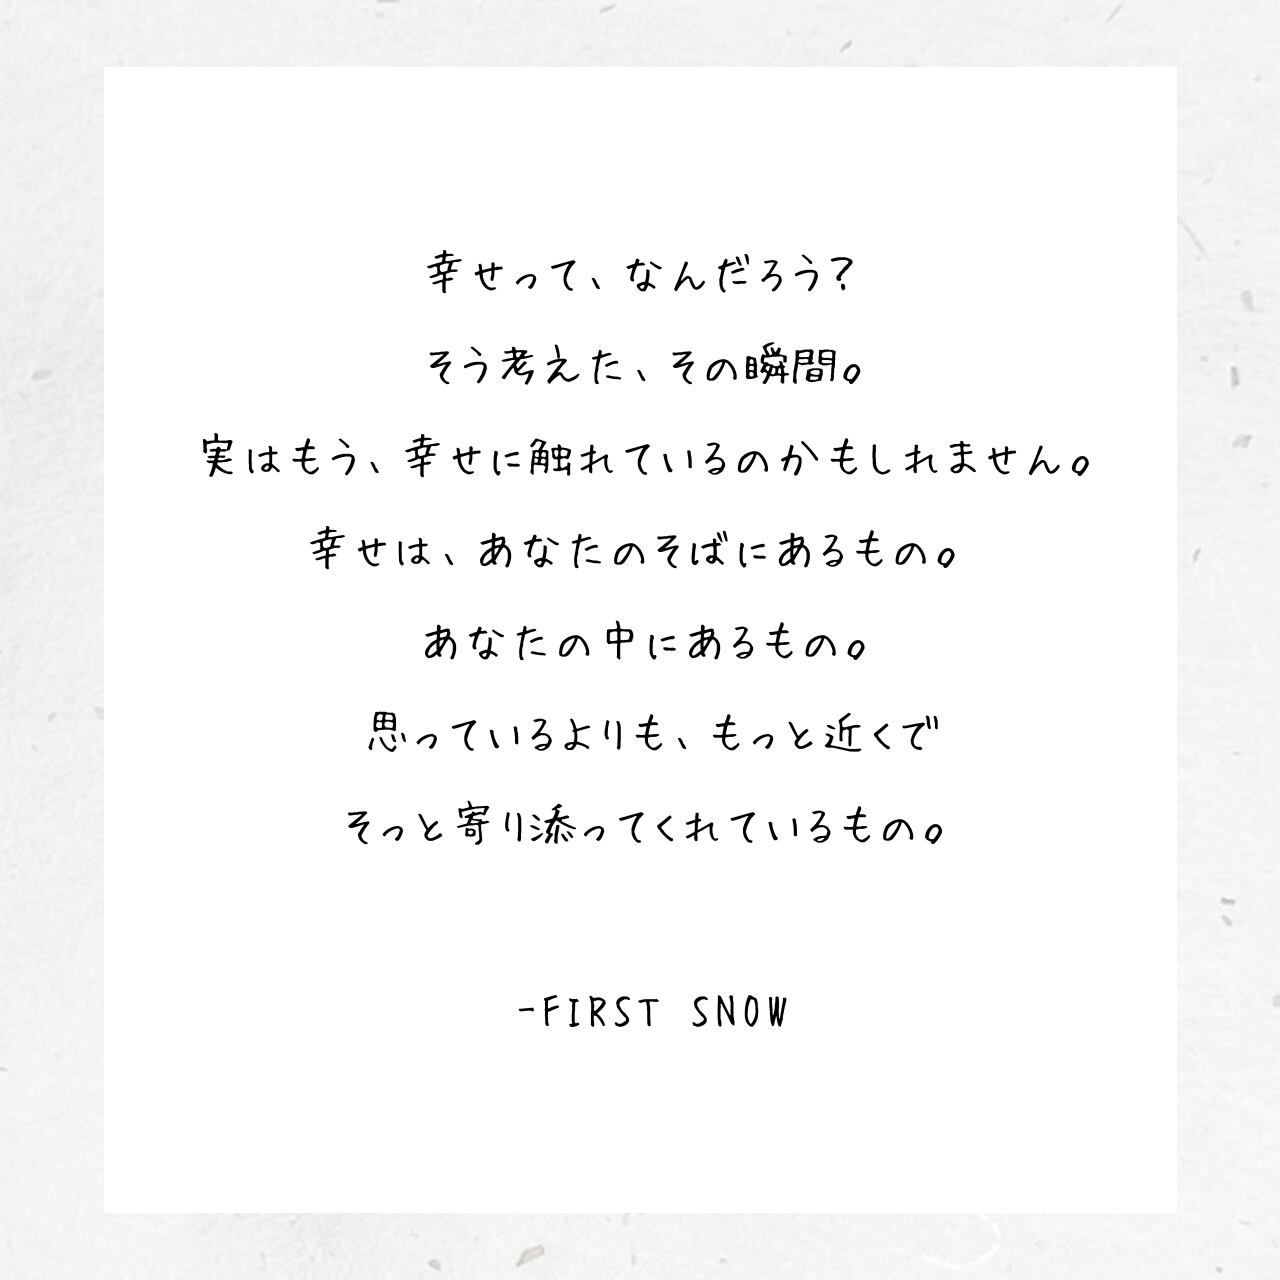 幸せって、なんだろう？
そう考えた、その瞬間。
実はもう、幸せに触れているのかもしれません。
幸せは、あなたのそばにあるもの。
あなたの中にあるもの。
思っているよりも、もっと近くで
そっと寄り添ってくれているもの。
-FIRST SNOW